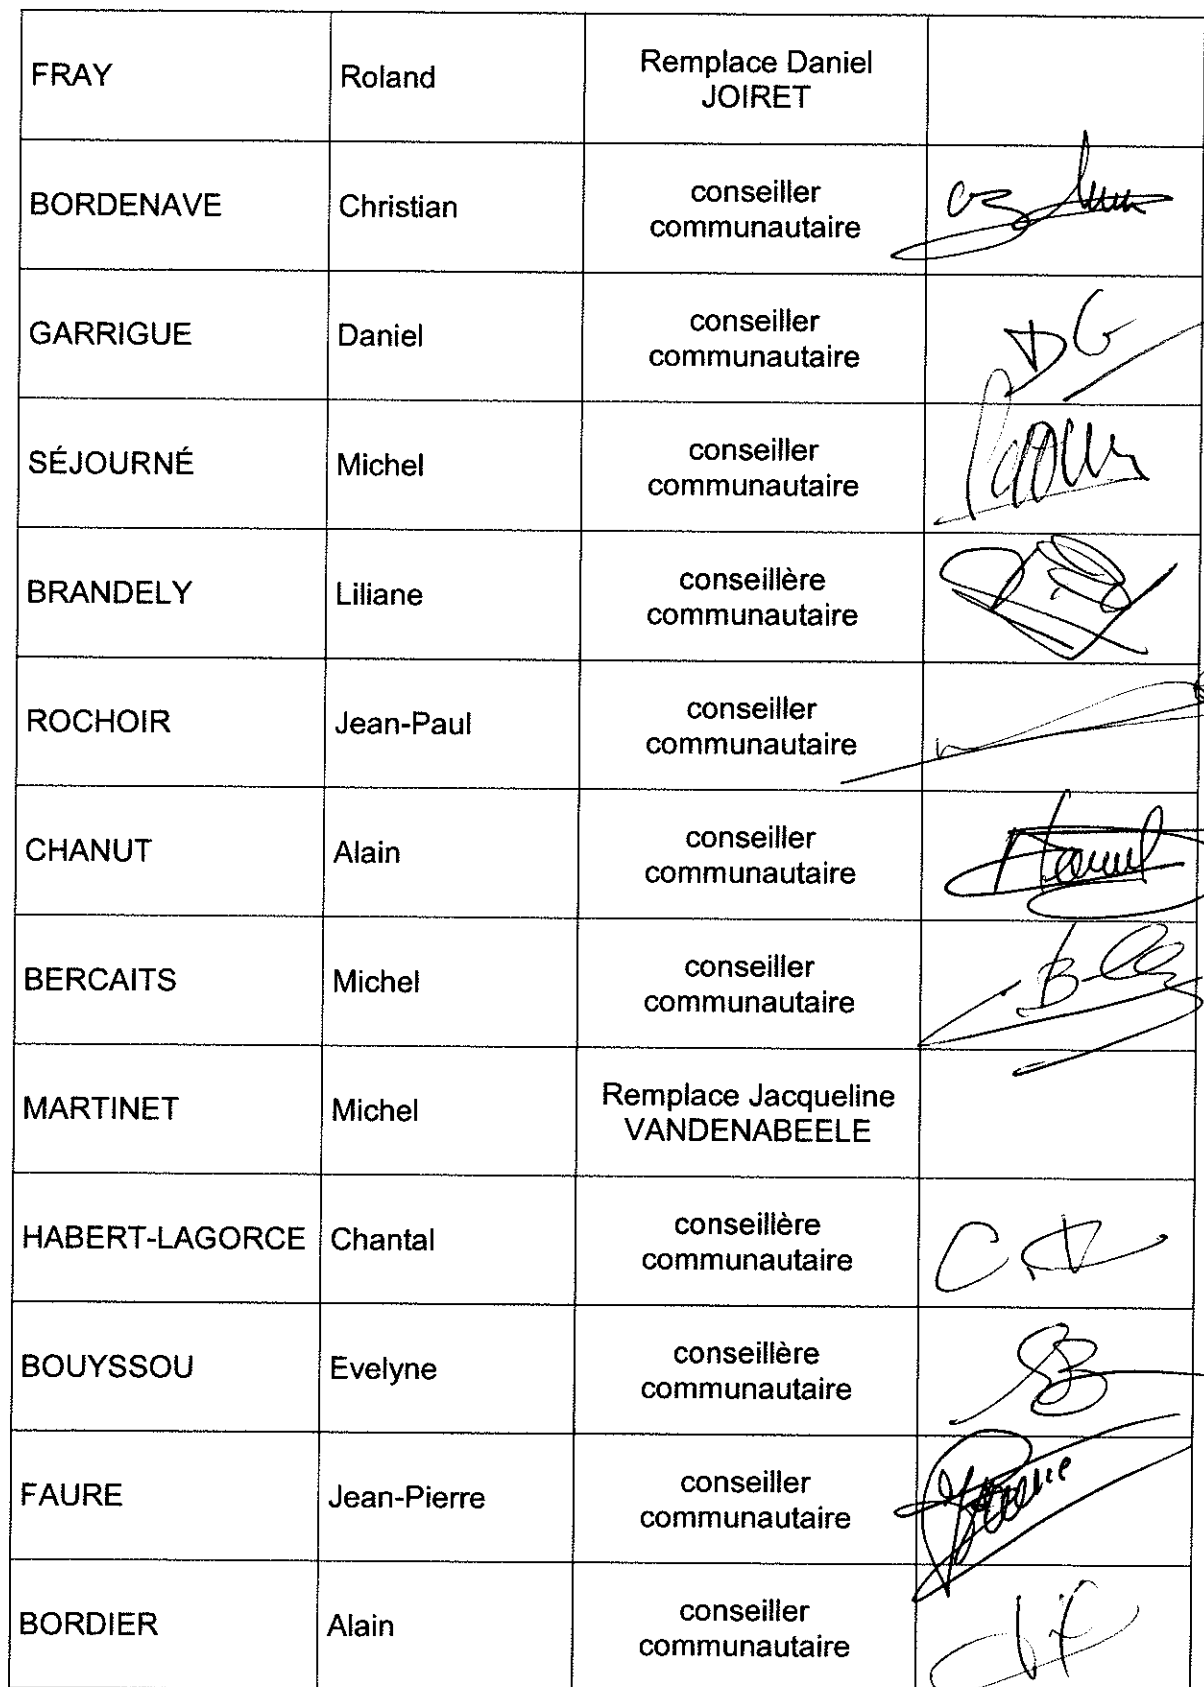 FRAY Roland Remplace Daniel
JOIRET
BORDENAVE Christian conseiller
communautaire
GARRIGUE Daniel conseiller
communautaire
DG
SÉJOURNÉ Michel conseiller
communautaire
BRANDELY Liliane conseillère
communautaire
ROCHOIR Jean-Paul conseiller
communautaire
CHANUT Alain conseiller
communautaire
BERCAITS Michel conseiller
communautaire
MARTINET Michel Remplace Jacqueline
VANDENABEELE
HABERT-LAGORCE Chantal conseillère
communautaire
BOUYSSOU Evelyne conseillère
communautaire
FAURE Jean-Pierre conseiller
communautaire
BORDIER Alain conseiller
communautaire